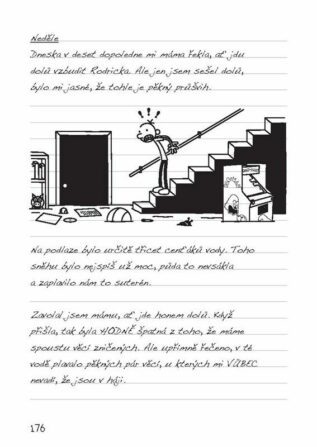 Neděle
Dneska v deset dopoledne mi máma řekla, ať jdu
dolů vzbudit Rodricka. Ale jen jsem sešel dolů,
bylo mi jasné, že tohle je pěkný průšvih.
Na podlaze bylo určitě třicet centáků vody. Toho
sněhu bylo nejspíš už moc, půda to nevsákla
a zaplavilo nám to suterén.
Zavolal jsem mámu, ať jde honem dolů. Když
přišla, tak byla HODNĚ špatná z toho, že máme
spoustu věcí zničených. Ale upřímně řečeno, v té
vodě plavalo pěkných pár věcí, u kterých mi VŮBEC
nevadí, že jsou v háji.
176